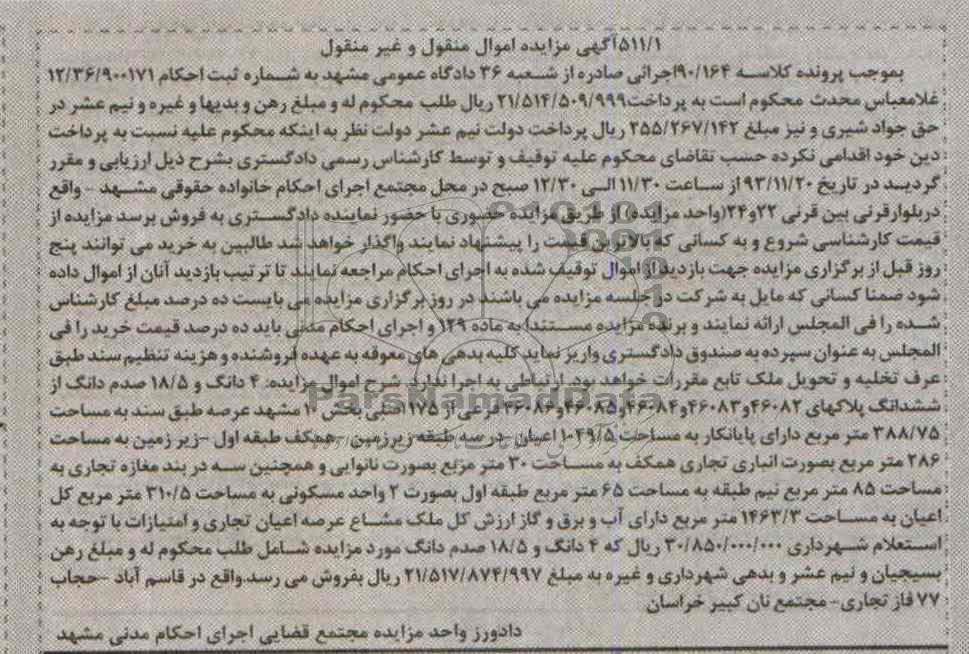 ۵۱۱/۱آگهی مزایده اموال منقول و غیر منقول
بموجب پرونده کلاسه ۹۰/۱۶۴اجرائی صادره از شعبه ۳۶ دادگاه عمومی مشهد به شماره ثبت احکام ۱۲/۳۶/۹۰۰۱۷۱
غلامعباس محدث محکوم است به پرداخت۲۱/۵۱۴/۵۰۹/۹۹۹ ریال طلب محکوم له و مبلغ رهن و بدیها و غیره و نیم عشر در
حق جواد شیری و نیز مبلغ ۲۵۵/۲۶۷/۱۴۲ ریال پرداخت دولت نیم عشر دولت نظر به اینکه محکوم علیه نسبت به پرداخت
دین خود اقدامی نکرده حسب تقاضای محکوم علیه توقیف و توسط کارشناس رسمی دادگستری بشرح ذیل ارزیابی و مقرر
گردید در تاریخ ۹۳/۱۱/۲۰ از ساعت ۱۱/۳۰ الی ۱۲/۳۰ صبح در محل مجتمع اجرای احکام خانواده حقوقی مشهد - واقع
دربلوارقرنی بین قرنی ۲۲و۲۴(واحد مزایده) از طریق مزایده حضوری با حضور نماینده دادگستری به فروش برسد مزایده از
قیمت کارشناسی شروع و به کسانی که بالاترین قیمت را پیشنهاد نمایند واگذار خواهد شد طالبین به خرید می توانند پنج
روز قبل از برگزاری مزایده جهت بازدید از اموال توقیف شده به اجرای احکام مراجعه نمایند تا ترتیب بازدید آنان از اموال داده
شود ضمنا کسانی که مایل به شرکت در جلسه مزایده می باشند در روز برگزاری مزایده می بایست ده درصد مبلغ کارشناس
شده را فی المجلس ارائه نمایند و برنده مزایده مستندا به ماده ۱۲۹ و اجرای احکام مدنی باید ده درصد قیمت خرید را فی
المجلس به عنوان سپرده به صندوق دادگستری واریز نماید کلیه بدهی های معوقه به عهده فروشنده و هزینه تنظیم سند طبق
عرف تخلیه و تحویل ملک تابع مقررات خواهد بود ارتباطی به اجرا ندارد شرح اموال مزایده: ۴ دانگ و ۱۸/۵ صدم دانگ از
ششدانگ پلاکهای ۴۶۰۸۲و۴۶۰۸۳و۴۶۰۸۴و۴۶۰۸۵و۴۶۰۸۶ فرعی از ۱۱۷۵اصلی بخش ۱۰ مشهد عرصه طبق سند به مساحت
۳۸۸/۷۵ متر مربع دارای پایانکار به مساحت ۱۰۴۹/۵ اعیان در سه طبقه زیرزمین - همکف طبقه اول -زیر زمین به مساحت
۲۸۶ متر مربع بصورت انباری تجاری همکف به مساحت ۳۰ متر مربع بصورت نانوایی و همچنین سه در بند مغازه تجاری به
مساحت ۸۵ متر مربع نیم طبقه به مساحت ۶۵ متر مربع طبقه اول بصورت ۲ واحد مسکونی به مساحت ۳۱۰/۵ متر مربع کل
اعیان به مساحت ۱۴۶۳/۳ متر مربع دارای آب و برق و گاز ارزش کل ملک مشاع عرصه اعیان تجاری و امتیازات با توجه به
استعلام شهرداری ۳۰/۸۵۰/۰۰۰/۰۰۰ ریال که ۴ دانگ و ۱۸/۵ صدم دانگ مورد مزایده شامل طلب محکوم له و مبلغ رهن
بسیجیان و نیم عشر و بدهی شهرداری و غیره به مبلغ ۲۱/۵۱۷/۸۷۴/۹۹۷ ریال بفروش می رسد.واقع در قاسم آباد -حجاب
۷۷ فاز تجاری- مجتمع نان کبیر خراسان
دادورز واحد مزایده مجتمع قضایی اجرای احکام مدنی مشهد
ParsNamadData